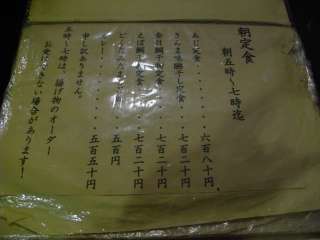 朝定食
朝五時〜七時迄
あじ定食・・・・・・・六百八十円
さんま味醂干し定食・・・七百二十円
金目鯛干し定食・・・・七百二十円
さば醂干し定食・・・・七百二十円
五百円
カレー・・・・・・・五百五十円
申し訳ありません。
五時〜七時は、揚げ物のオーダー
お受けできない場合があります！